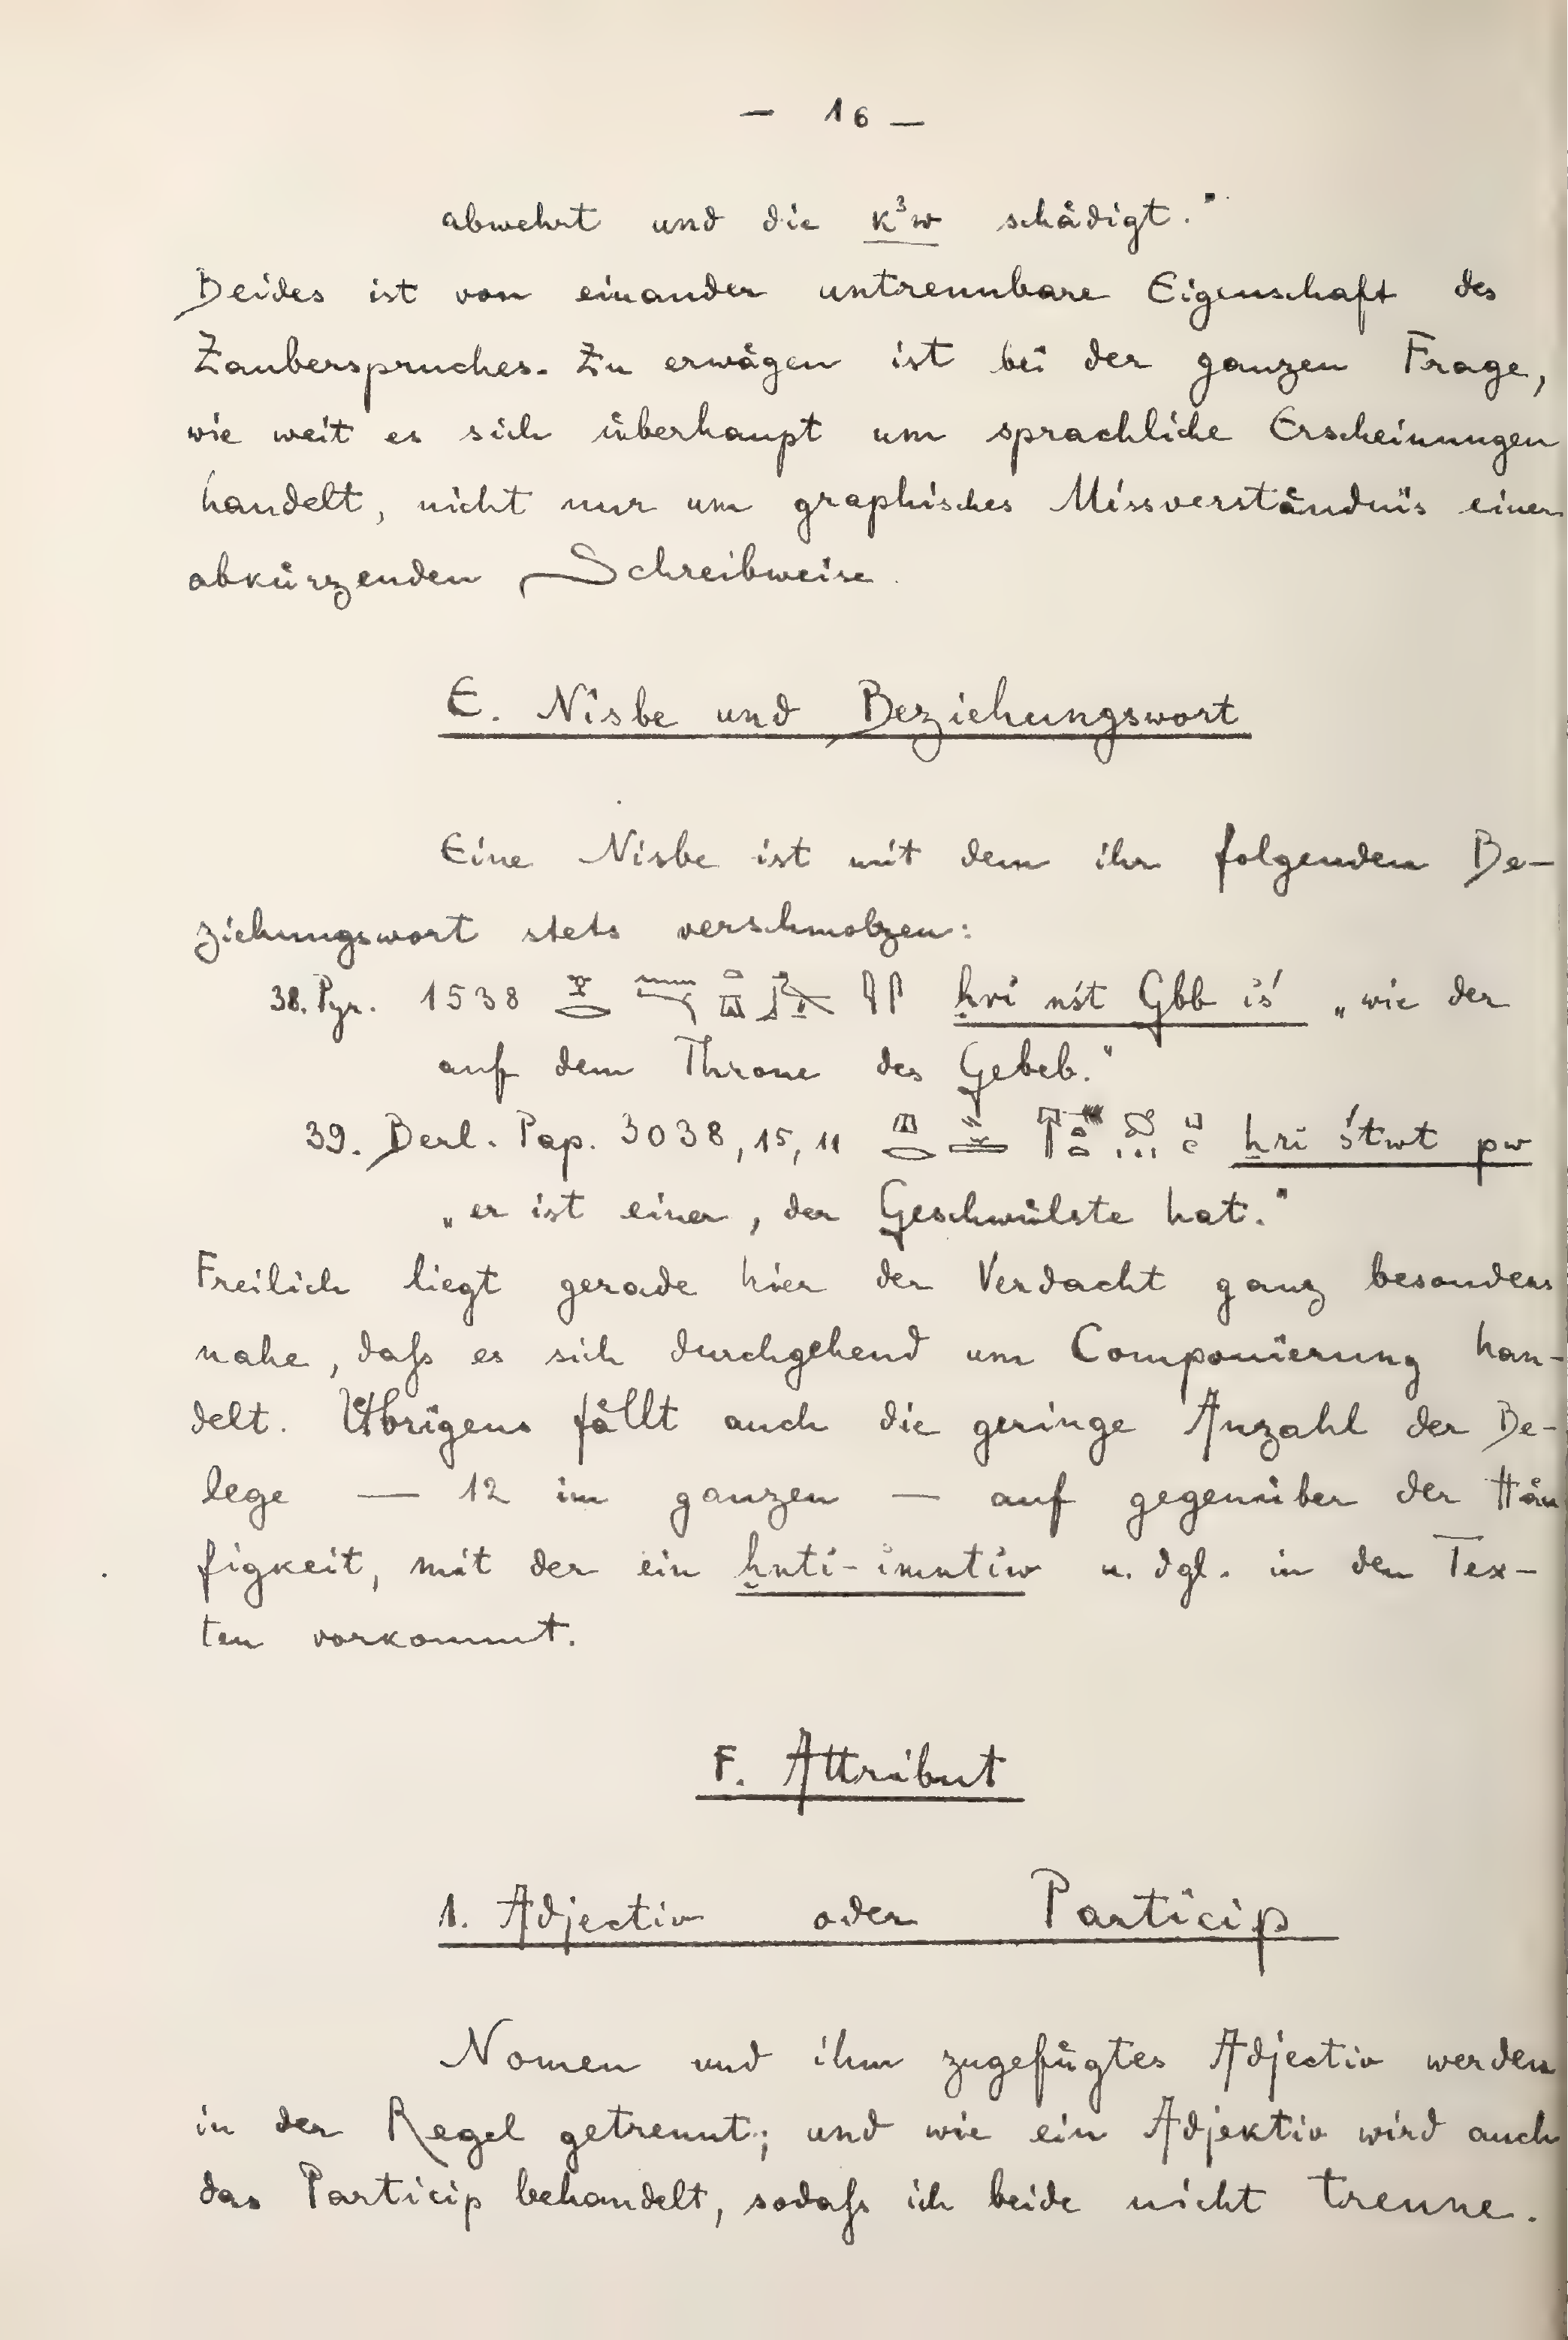 — 16 —
abwehrt und die kꜣw schädigt."
Beides ist von einander untrennbare Eigenschaft des
Zauberspruches. Zu erwägen ist bei der ganzen Frage,
wie weit es sich überhaupt um sprachliche Erscheinungen
handelt, nicht nur um graphisches Missverständnis einer
abkürzenden Schreibweise.
E. Nisbe und Beziehungswort
Eine Nisbe ist mit dem ihr folgenden Be-
ziehungswort stets verschmolzen:
38. Pyr. 1538 ẖri nśt Gbb iś „wie der
auf dem Throne des Gebeb."
39. Berl. Pap. 3038, 15, 11 ẖri śtwt pw
„er ist einer, der Geschwülste hat."
Freilich liegt gerade hier der Verdacht ganz besonders
nahe, daſs es sich durchgehend um Componierung han-
delt. Übrigens fällt auch die geringe Anzahl der Be-
lege — 12 im ganzen — auf gegenüber der Häu
figkeit, mit der ein ḫnti-imntiw u. dgl. in den Tex-
ten vorkommt.
F. Attribut
1. Adjectiv oder Particip
Nomen und ihm zugefügtes Adjectiv werden
in der Regel getrennt; und wie ein Adjektiv wird auch
das Particip behandelt, sodaſs ich beide nicht trenne.